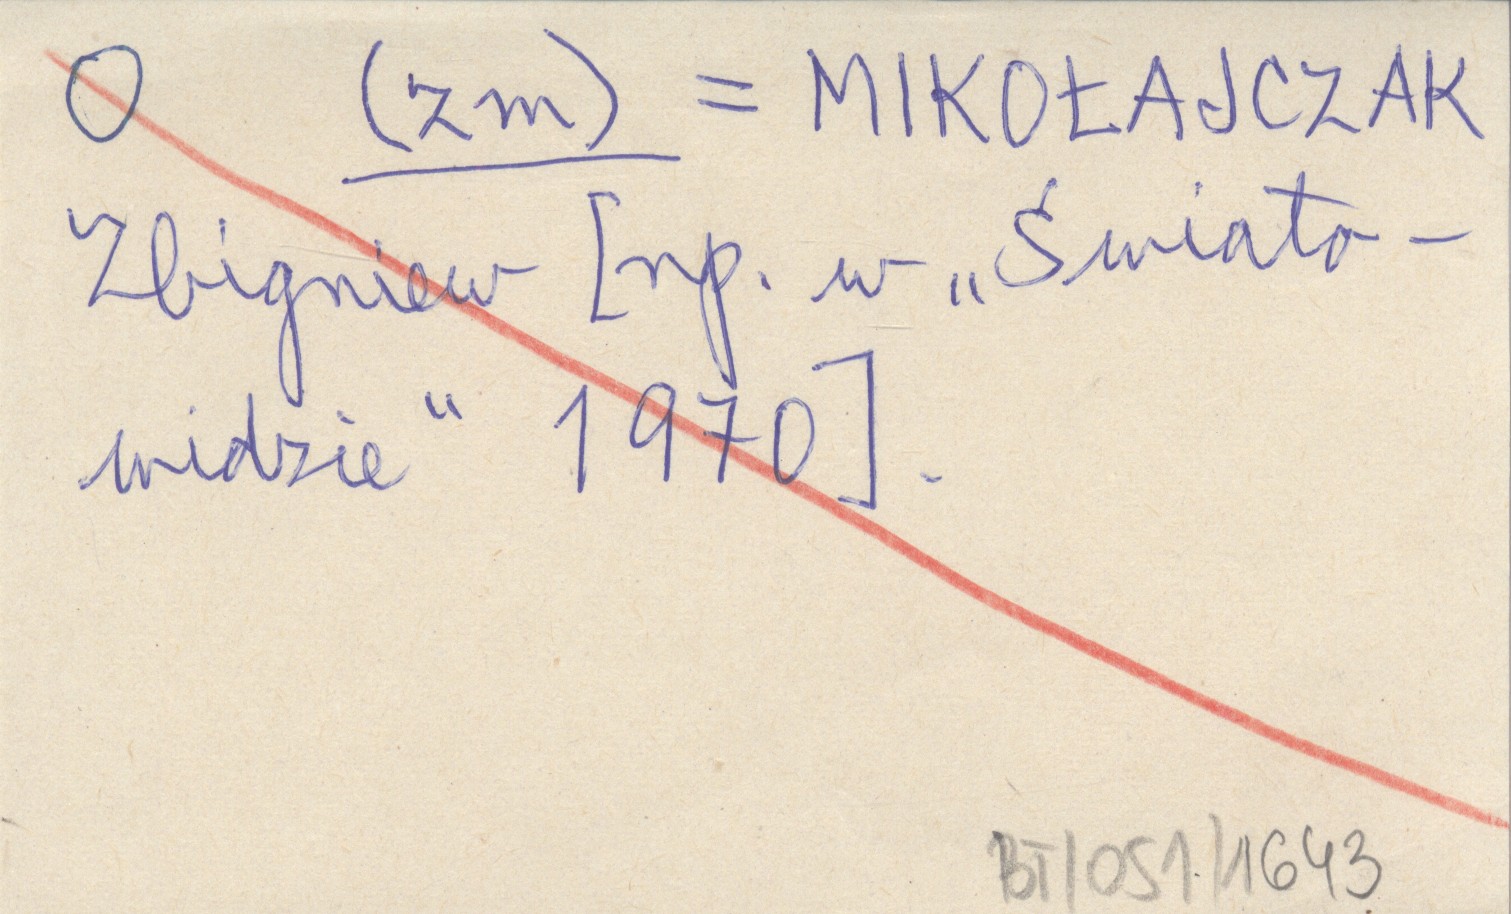 O (zm) = MIKOŁAJCZAK
Zbigniew [np. w „Świato-
widzie" 1970].
BT/051/1643